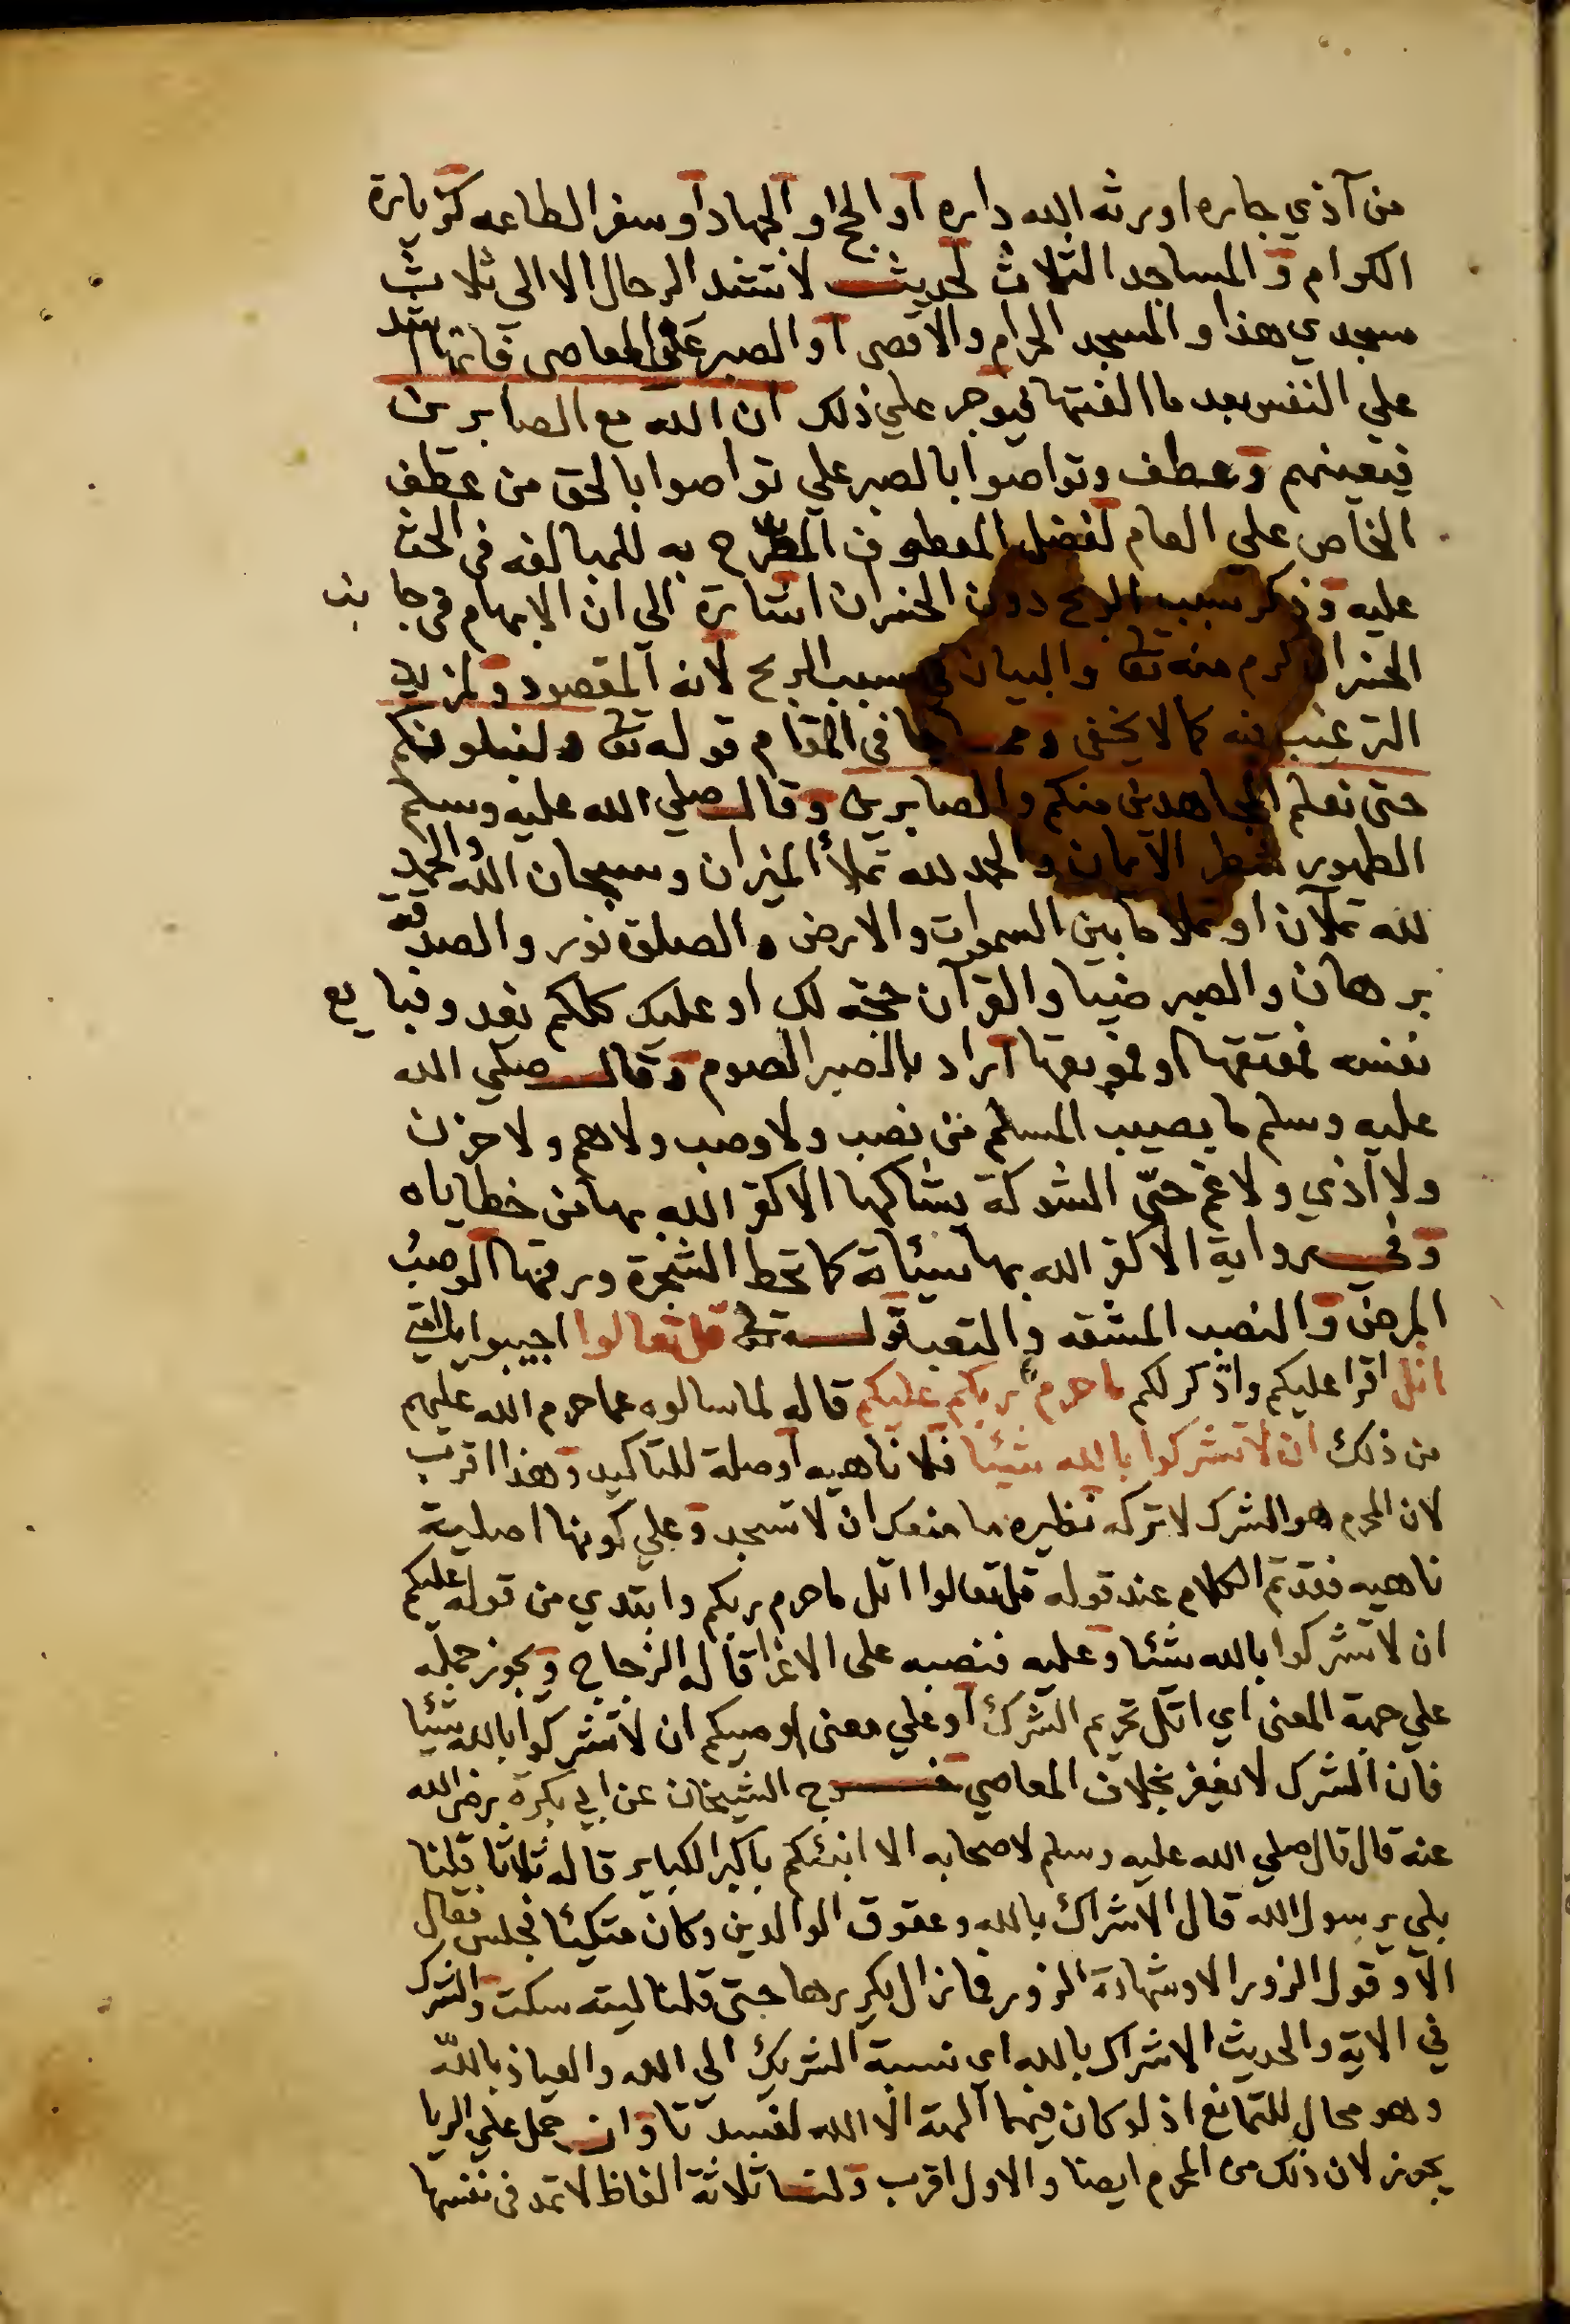 من آذي جاره اورثه الله داره او الحج او الجهاد او سفر الطاعه كزيارة
الكرام و المساجد الثلاث لحديث لا تشد الرحال الا الى ثلاث
مسجدي هذا و المسجد الحرام والاقصى او الصبر على المعاصى فانها تشد
علي النفس بعد ما الفتها فيوجر علي ذلك ان الله مع الصابرين
فيعينهم وعطف وتواصوا بالصبر علي تواصوا بالحق من عطف
الخاص علي العام لفضل المعطوف المصرح به للمبالغه فى الحث
عليه وذكر سبب الربح دون الخسران اشارة الى ان الابهام فى جانب
الخسران كرم منه تعا والبيان فى سبب الربح لانه المقصود ولمزيد
الترغيب فيه كما لا يخفى فى المقام قوله تعا ولنبلونكم
حتى نعلم المجاهدين منكم والصابرين وقال صلي الله عليه وسلم
الطهور شطر الايمان والحمد لله تملأ الميزان وسبحان الله والحمد
لله تملآن او تملا ما بين السموات والارض والصلوة نور والصدقه
برهان والصبر ضيا والقرآن حجة لك او عليك كلكم يغدو فبايع
نفسه فمعتقها او موبقها اراد بالصبر الصوم وقال صلي الله
عليه وسلم ما يصيب المسلم من نصب ولا وصب ولا هم ولا حزن
ولا اذي ولا غم حتى الشوكة يشاكها الا كفر الله بها من خطاياه
وفي رواية الا كفر الله بها سيئاته كما تحط الشجرة ورقها الوصب
المرض والنصب المشقه والتعب قوله تعالى قل تعالوا اجيبوا
اتل اقرا عليكم واذكر لكم ما حرم ربكم عليكم قاله لما سالوه عما حرم الله عليهم
من ذلك ان لا تشركوا بالله شيئا فلا ناهيه او صلة للتاكيد وهذا اقرب
لان المحرم هو الشرك لا تركه نظيره ما منعك ان لا تسجد وعلي كونها اصلية
ناهيه فقد تم الكلام عند قوله قل تعالوا اتل ما حرم ربكم وابتدي من قوله عليكم
ان لا تشركوا بالله شئا وعليه فنصبه على الاغرا قاله الزجاج ويجوز حمله
علي جهة المعنى اي اتل تحريم الشرك او علي معنى اوصيكم ان لا تشركوا بالله شيئا
فان الشرك لا يغفر بخلاف المعاصي خرج الشيخان عن ابي بكرة رضى الله
عنه قال قال صلي الله عليه وسلم لاصحابه الا انبئكم باكبر الكباير قاله ثلاثا قلنا
بلي يرسول الله قال الاشراك بالله وعقوق الوالدين وكان متكئا فجلس فقال
الا وقول الزور الا وشهادة الزور فما زال يكررها حتى قلنا ليته سكت والشرك
في الاية والحديث الاشراك بالله اي نسبة الشريك الى الله والعياذ بالله
وهو محال للتمانع اذ لو كان فيهما آلهة الا الله لفسدتا وان حمل علي الريا
يجوز لان ذلك من المحرم ايضا والاول اقرب ولنا ثلاثة الفاظ لا تمد فى نفسها